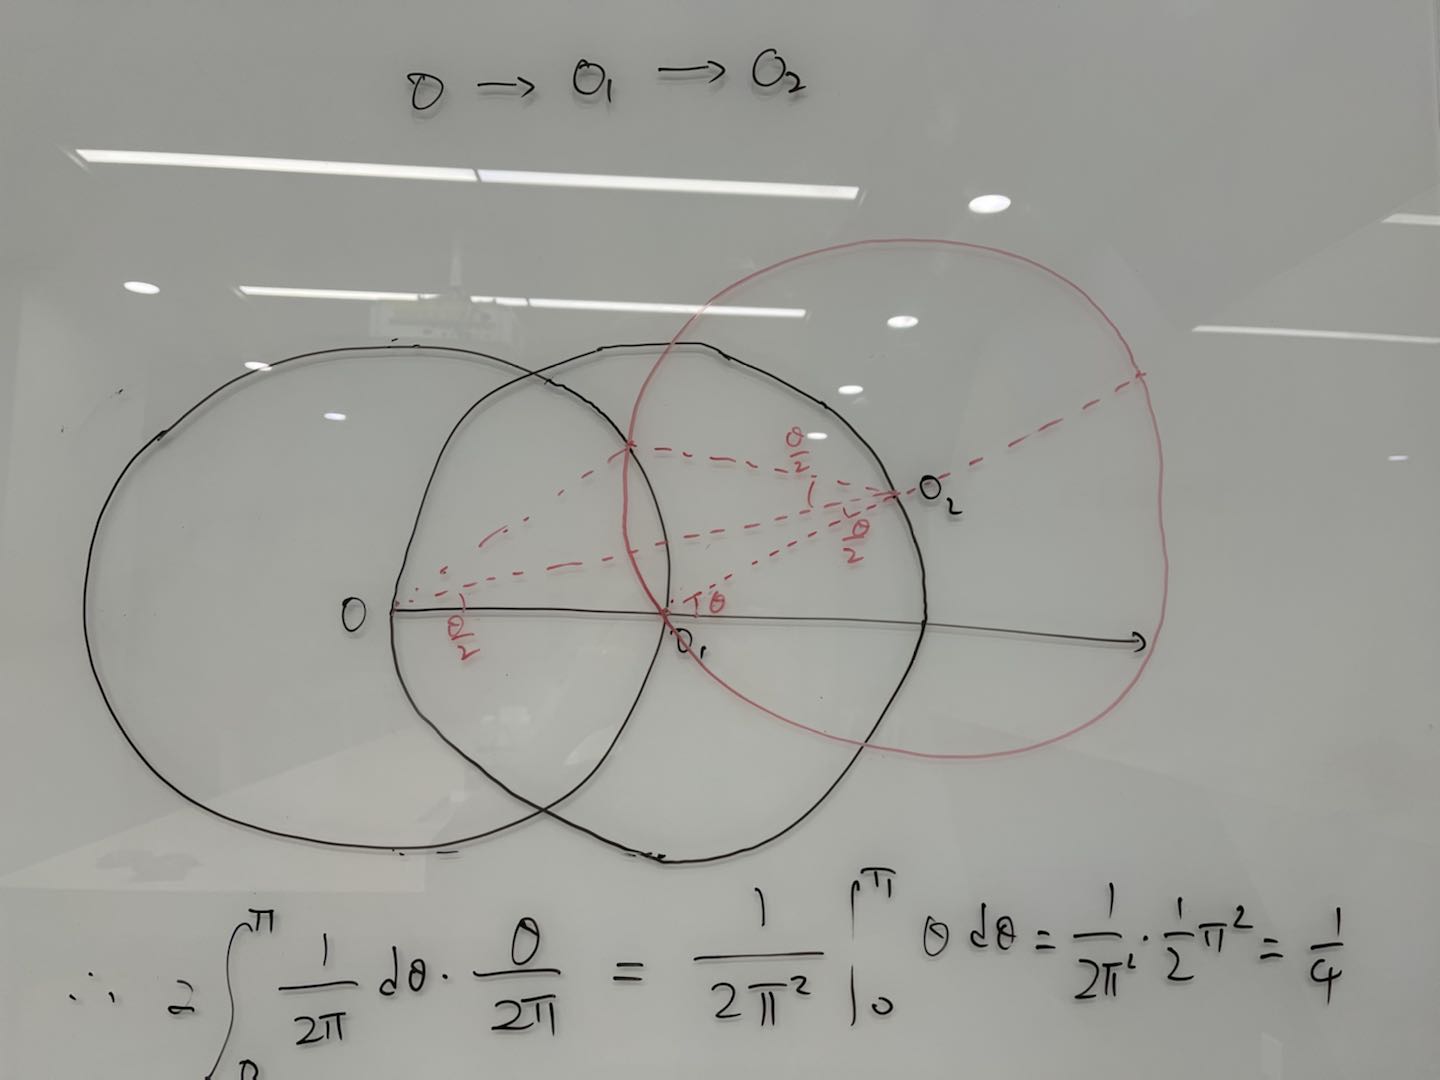 O → O₁ → O₂
θ/2
O₂
θ/2
O
θ/2
θ
O₁
∴ 2 ∫₀^π 1/2π dθ · θ/2π = 1/2π² ∫₀^π θ dθ = 1/2π² · 1/2 π² = 1/4